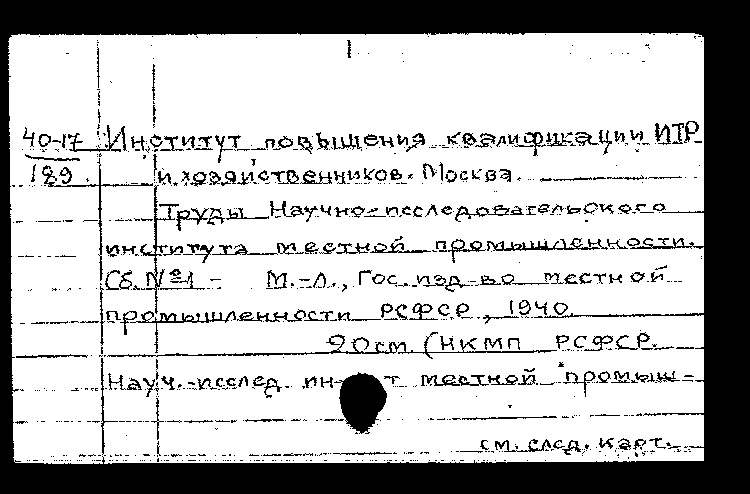 40-17 Институт повышения квалификации ИТР
189. и хозяйственников. Москва.
Труды Научно-исследовательского
института местной промышленности.
Сб. №1 - М.-Л., Гос. изд-во местной
промышленности РСФСР, 1940.
20см. (НКМП РСФСР.
Науч.-исслед. ин-т местной промыш-
см. след. карт.